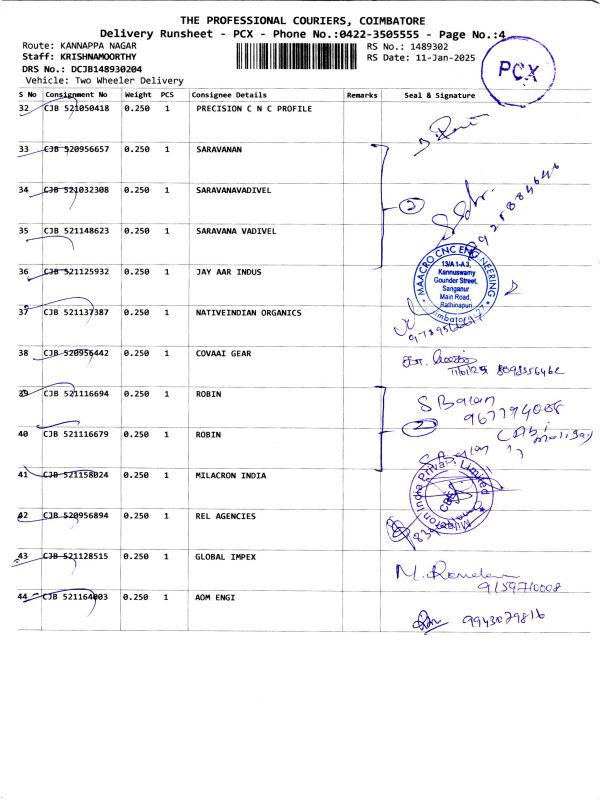 THE PROFESSIONAL COURIERS, COIMBATORE
Delivery Runsheet - PCX - Phone No.:0422-3505555 - Page No.:4
Route: KANNAPPA NAGAR
RS No.: 1489302
Staff: KRISHNAMOORTHY
RS Date: 11-Jan-2025
DRS No.: DCJB148930204
Vehicle: Two Wheeler Delivery
PCX
S No Consignment No Weight PCS Consignee Details Remarks Seal & Signature
32 CJB 521050418 0.250 1 PRECISION C N C PROFILE
33 CJB 520956657 0.250 1 SARAVANAN
34 CJB 521032308 0.250 1 SARAVANAVADIVEL
2
35 CJB 521148623 0.250 1 SARAVANA VADIVEL
36 CJB 521125932 0.250 1 JAY AAR INDUS
MAACRO CNC ENGINEERING
13/A 1-A3,
Kannuswamy
Gounder Street,
Sanganur
Main Road,
Rathinapuri
37 CJB 521137387 0.250 1 NATIVEINDIAN ORGANICS
38 CJB 520956442 0.250 1 COVAAI GEAR
11/1/25
39 CJB 521116694 0.250 1 ROBIN
S Balan
967794088
2
40 CJB 521116679 0.250 1 ROBIN
S Balan
41 CJB 521158024 0.250 1 MILACRON INDIA
Milacron India Private Limited
42 CJB 520956894 0.250 1 REL AGENCIES
43 CJB 521128515 0.250 1 GLOBAL IMPEX
9159710008
44 CJB 521164003 0.250 1 AOM ENGI
9943079816